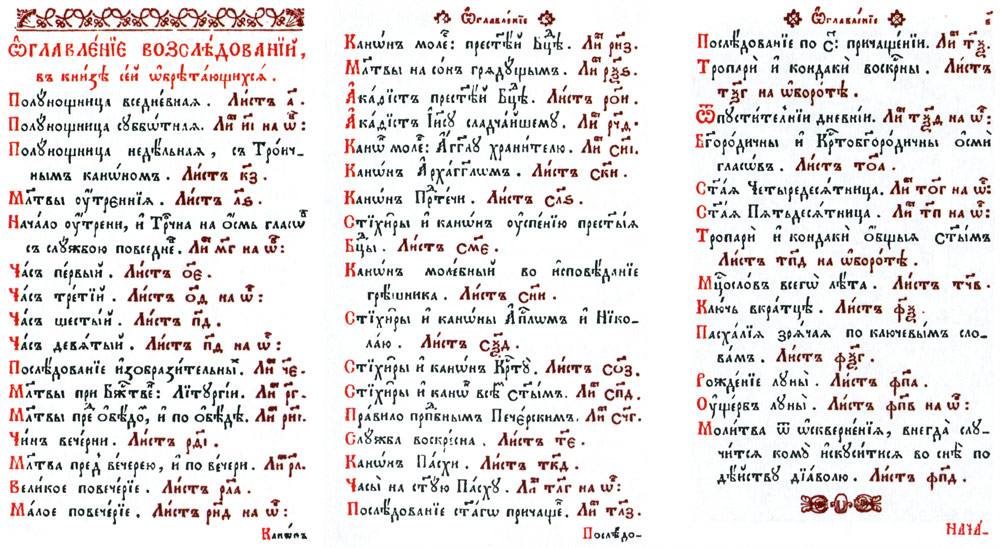 Ѡ҆главле́нїе возслѣ́дованїй,
въ кни́зѣ се́й ѡ҆брѣта́ющихсѧ.
Полꙋ́нощница вседне́внаѧ. Ли́стъ а҃.
Полꙋ́нощница сꙋббѡ́тнаѧ. Ли҃ и҃і на ѡ҆б̾:
Полꙋ́нощница недѣ́льнаѧ, съ Тро́ич-
нымъ канѡ́номъ. Ли́стъ к҃з.
Мл҃твы ᲂу҆́трєннїѧ. Ли́стъ л҃ѕ.
Нача́ло ᲂу҆́трени, и҆ Трⷪ҇чна на ѻ҆́смь гласѡ́въ
съ слꙋ́жбою повседне́в. Ли҃ м҃г на ѡ҆б̾:
Ча́съ пе́рвый. Ли́стъ ѻ҃є.
Ча́съ тре́тїй. Ли́стъ ѻ҃д на ѡ҆б̾:
Ча́съ шесты́й. Ли́стъ п҃д.
Ча́съ девѧ́тый. Ли́стъ п҃д на ѡ҆б̾:
Послѣ́дованїе и҆зѡбрази́тєльны. Ли҃ ч҃є.
Мл҃твы при Бжⷭ҇твѣ: Лїтꙋргі́и. Ли҃ р҃г.
Мл҃твы пре́д ѻ҆бѣ́до, и҆ по ѻ҆бѣ́дѣ. Ли҃ рн҃і.
Чи́нъ вече́рни. Ли́стъ рд҃і.
Мл҃тва пред̾ вече́рею, и҆ по вече́ри. Ли҃ рл҃.
Вели́кое повече́рїе. Ли́стъ рл҃а.
Ма́лое повече́рїе. Ли́стъ рн҃д на ѡ҆б̾:
Канѡ́нъ
Ѡ҆главле́нїе
Канѡ́нъ моле́: прест҃е́й Бц҃ѣ. Ли҃ рн҃з.
Мл҃твы на со́нъ грѧдꙋ́щымъ. Ли҃ рѯ҃ѕ.
А҆ка́ѳїстъ прест҃е́й Бц҃ѣ. Ли́стъ ро҃и.
А҆ка́ѳїстъ І҆и҃сꙋ сладча́йшемꙋ. Ли҃ рч҃д.
Канѡ́ моле́: А҆́гг҃лꙋ храни́телю. Ли҃ сн҃і.
Канѡ́нъ А҆рха́гг҃лѡмъ. Ли́стъ ск҃и.
Канѡ́нъ Прⷣте́чи. Ли́стъ сл҃ѕ.
Стїхи̑ры и҆ канѡ́нъ ᲂу҆спе́нїю прест҃ы́ѧ
Бц҃ы. Ли́стъ см҃є.
Канѡ́нъ моле́бный во и҆сповѣ́данїе
грѣ́шника. Ли́стъ сн҃и.
Стїхи̑ры и҆ канѡ́ны А҆пⷭ҇лѡмъ и҆ Нїко-
ла́ю. Ли́стъ сѯ҃д.
Стїхи̑ры и҆ канѡ́нъ Крⷭ҇тꙋ̀. Ли́стъ со҃з.
Стїхи̑ры и҆ канѡ́ всѣ́ ст҃ы̑мъ. Ли́стъ сп҃д.
Пра́вило прпⷣбнымъ Пече́рскимъ. Ли҃ сч҃г.
Слꙋ́жба воскрⷭ҇сна. Ли́стъ т҃є.
Канѡ́нъ Па́схи. Ли́стъ тк҃д.
Часы̀ на ст҃ꙋ́ю Па́схꙋ. Ли҃ тл҃г на ѡ҆б̾:
Послѣ́дованїе ст҃а́гѡ прича́ще. Ли҃ тл҃з.
Послѣ́до-
Ѡ҆главле́нїе
Послѣ́дованїе по с҃: причаще́нїи. Ли҃ тѯ҃.
Тропарѝ и҆ кондакѝ воскрⷭ҇ны. Ли́стъ
тѯ҃г на ѡ҆боро́тѣ.
Ѿпꙋсти́тєлнїи дне́внїи. Ли҃ тѯ҃д на ѡ҆б̾:
Бг҃оро́дичны и҆ Крⷭ҇тобг҃оро́дичны ѻ҆смѝ
гласѡ́въ. Ли́стъ то҃а.
Ст҃а́ѧ Четыредесѧ́тница. Ли҃ то҃г на ѡ҆б̾:
Ст҃а́ѧ Пѧтьдесѧ́тница. Ли҃ тп҃ на ѡ҆б̾:
Тропарѝ и҆ кондакѝ ѻ҆́бщыѧ ст҃ы̑мъ
Ли́стъ тп҃д на ѡ҆боро́тѣ.
Мцⷭ҇осло́въ всегѡ̀ лѣ́та. Ли́стъ тч҃в.
Клю́чь вкра́тцѣ. Ли́стъ фѯ҃.
Пасха́лїа зрѧ́чаѧ по ключевы̑мъ сло-
ва́мъ. Ли́стъ фѯ҃г.
Рожде́нїе лꙋны̀. Ли́стъ фп҃а.
Оу҆ще́рбъ лꙋны̀. Ли́стъ фп҃в на ѡ҆б̾:
Моли́тва ѿ ѡ҆скверне́нїѧ, внегда̀ слꙋ-
чи́тсѧ комꙋ̀ и҆скꙋси́тисѧ во снѣ̀ по
дѣ́йствꙋ дїа́волю. Ли́стъ фп҃д.
Нача́-